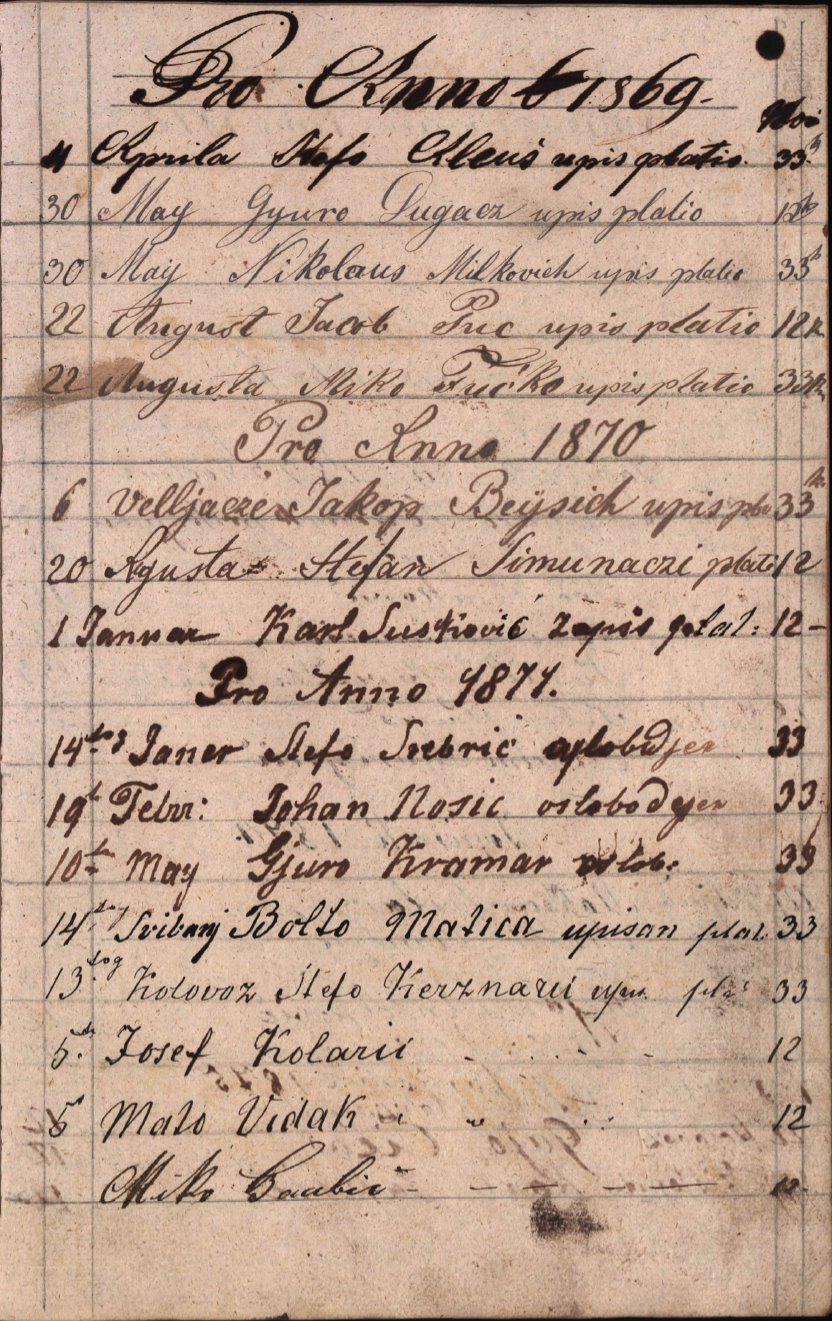 Pro Anno 1869.
Noi
4 Aprila Stefo Kleuś upis platio. 33
30 May Gyuro Dugacz upis platio 12
30 May Nikolaus Milkovich upis platio 33
22 August Jacob Puc upis platio 12
22 Augusta Miko Fućko upis platio 33
Pro Anno 1870
6 Velljacze Jakop Beÿsich upis 33
20 Agusta Stefan Simunaczi plati 12
1 Januar Karl Susković zapis plat: 12 –
Pro Anno 1871.
14tog Janer Stefo Srebrić oslobodjen 33
19t Febr: Johan Nosic oslobodyen 33
10t May Gjuro Kramar oslob: 33
14tog Svibanj Bolto Matica upisan plat. 33
13tog Kolovoz Stefo Kerznarić upis. 33
5t Josef Kolarić 12
5t Mato Vidak „ 12
Miko – – – –